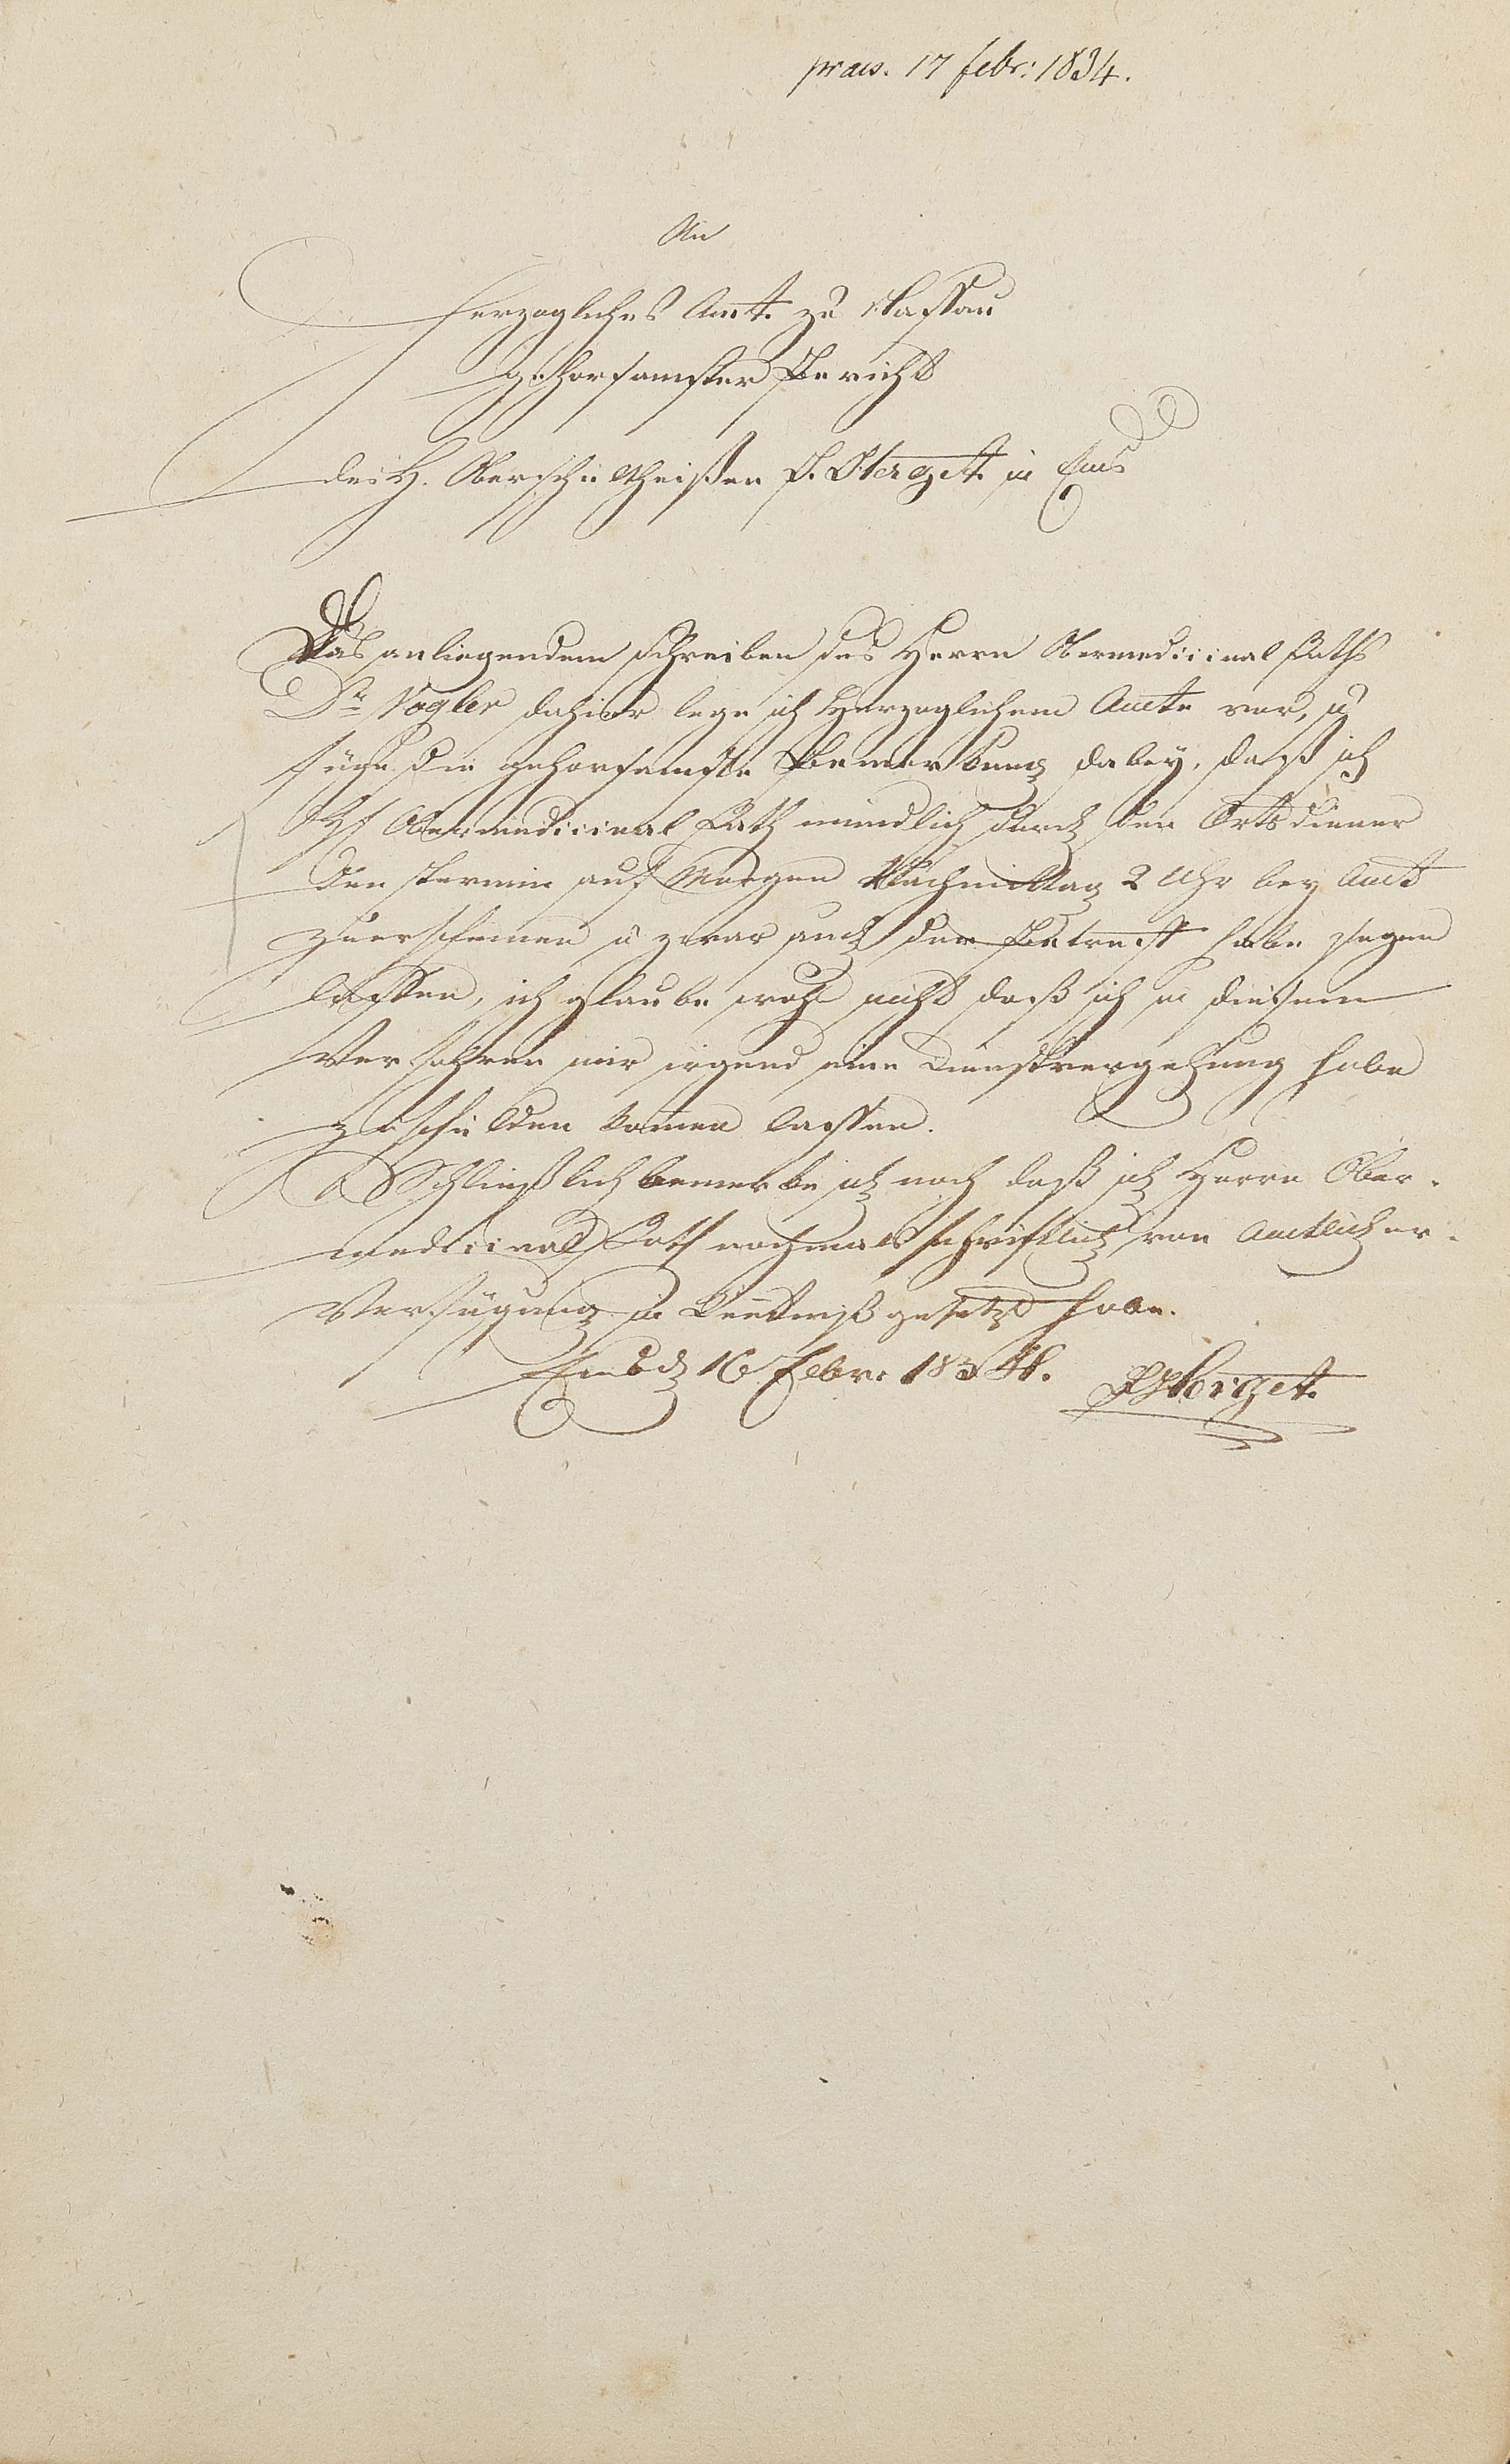 praes. 17 febr: 1834.
An
Herzogliches Amt. zu Nassau
gehorsamster Bericht
des H. Oberschultheißen P. Herget. in Ems
Das anliegendem Schreiben des Herrn Obermedicinal Raths
Dr Vogler dahier lege ich Herzoglichem Amte vor, u
füge die gehorsamste Bemerkung dabey, daß ich
Obermedicinal Rath mündlich durch den Ortsdiener
den Termin auf Morgen Nachmittag 2 Uhr bey Amt
zuerscheinen u zwar auch den Betreff habe sagen
lassen, ich glaube wohl nicht daß ich in diesem
Verfahren mir irgend eine Dienstvergehung habe
zu schulden komen lassen.
Schließlich bemerke ich noch daß ich Herrn Ober-
medicinal Rath nochmals schriftlich von Amtlicher-
Verfügung in Kenntniß gesetzt habe.
Ems d 16 Febr. 1834. P Herget.